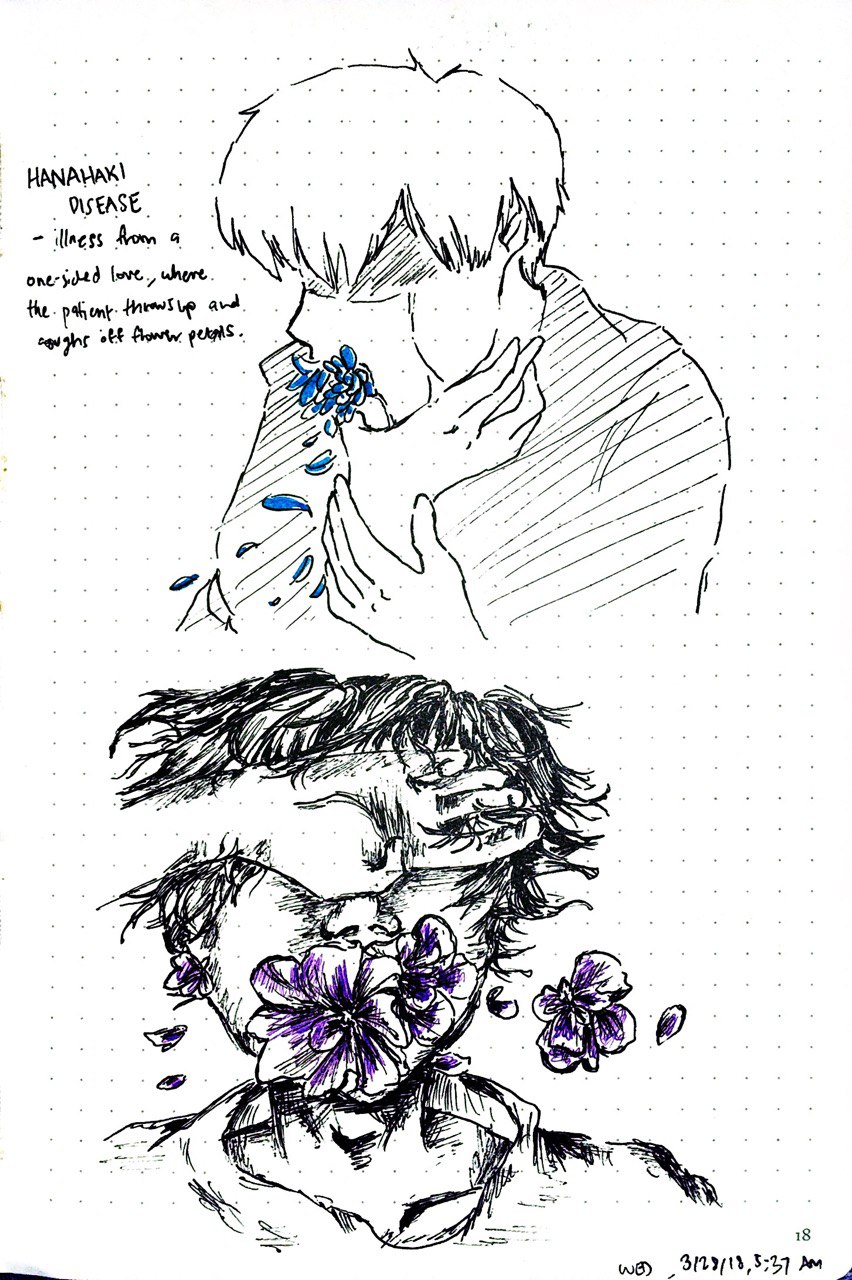 HANAHAKI
DISEASE
- illness from a
one-sided love, where
the patient throws up and
coughs off flower petals.
18
WED, 3/28/18, 5:37 AM